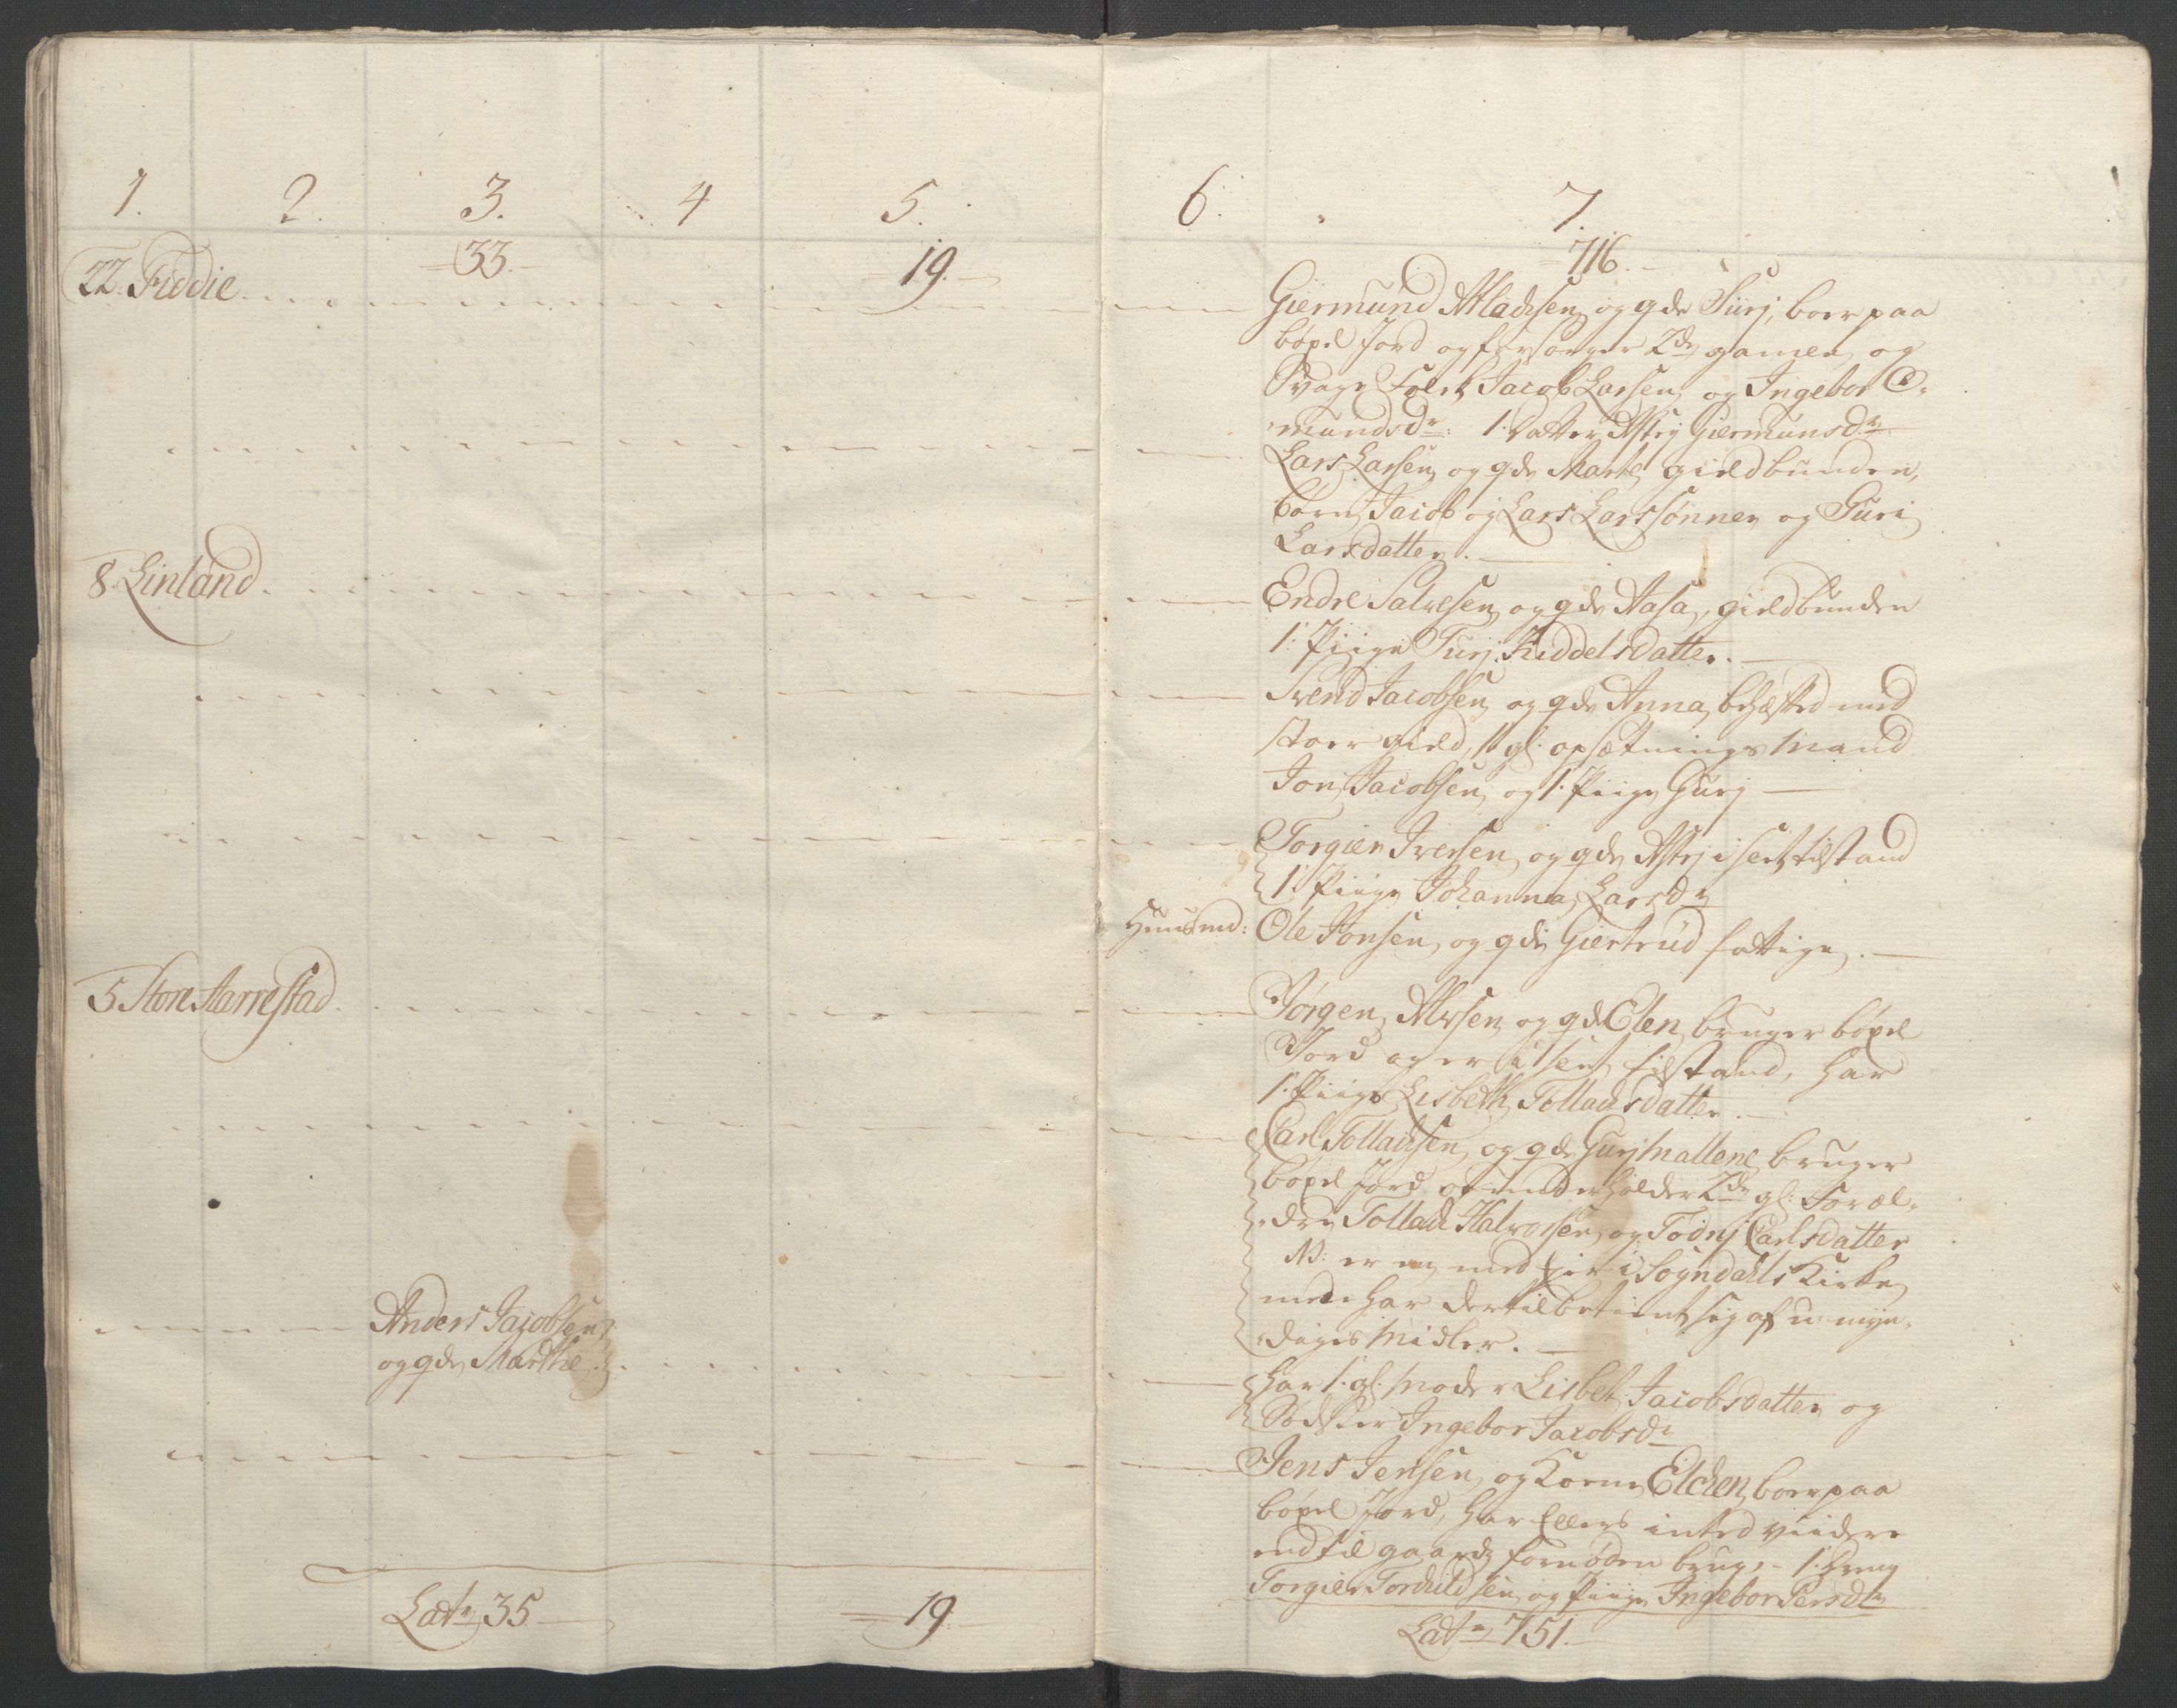 1. 2. 3. 4 5. 6. 7.
33. 19. 716.
22. Fiddie
Giermund Atladsen og qde Siirj, boer paa
böxel Jord og forsörger 2de gamle og
Svage Folk Jacob Larsen og Ingebor O-
mundsdr: 1 datter Astrj Giermunsdr
Lars Larsen og qde Marte gieldbunden,
börn Jacob og Lars Larssönner og Guri
Larsdatter.
8. Linland
Endre Salvesen og qde Aasa, gieldbunden
1. Piige Turj Kiddelsdatter.
Svend Jacobsen og qde Anna behæftet med
stor gield, 1 gl: opsætnings Mand
Jon Jacobsen og 1. Piige Gurj
Torgier Iversen og qde Astrj i slet tilstand
1. Piige Johanna Larsdr
Huusmd: Ole Jonsen og qde Giertrud fattige.
5 Store Aarrestad
Jörgen Alvsen og qde Elen bruger böxel
Jord og er i slet tilstand, har
1. Piige Lisbeth Tolladsdatter.
Carl Tolladsen og qde Gurj Mallene bruger
böxel Jord og underholder 2de gl: Foræl-
dre Tollack Halvorsen og Todnj Carlsdatter
NB: er eg med Eier i Sogndahls Kirke
men har dertil betient sig af u-myn-
diges Midler.
Anders Jacobsen
og qde Marthe
har 1. gl: Moder Lisbet Jacobsdatter og
Södster Ingebor Jacobsdr
Jens Jensen og Kone Elchen boer paa
böxel Jord, har Ellers intet viidere
end til gaards fornöden brug, - 1. Dreng
Torgier Torkildsen og Piige Ingebor Persdr
Latr 35 19. Latr 751.